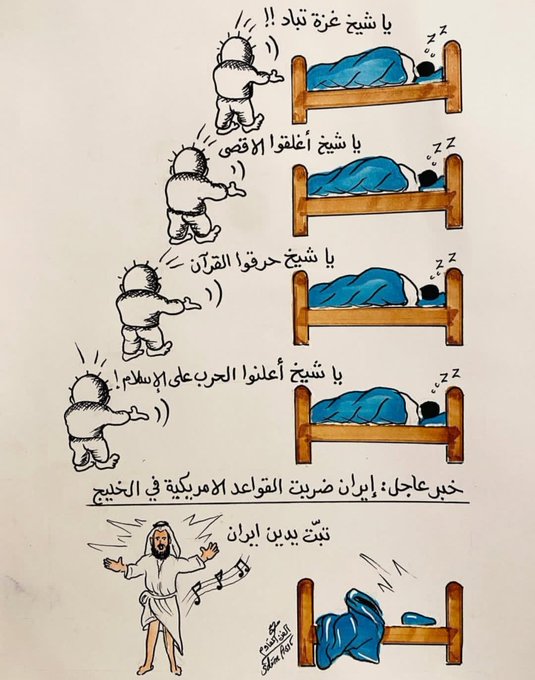 يا شيخ غزة تباد !!
z z
يا شيخ أغلقوا الاقصى
z z
يا شيخ حرقوا القرآن
z z
يا شيخ أعلنوا الحرب على الإسلام !
z z
خبر عاجل: إيران ضربت القواعد الامريكية في الخليج
تبّت يدين ايران